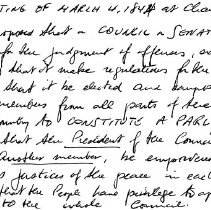 TING OF MARCH 4, 184 at Cha
roposed that a COUNCIL or SENAT
for the judgment of offences, a
that it make regulations for the
that it be elected and emp
members from all parts of the
country to CONSTITUTE A PARL
that the President of the Counci
Another member, be empowered
as justices of the peace in each
that the People have privilege to ap
to the whole Council.